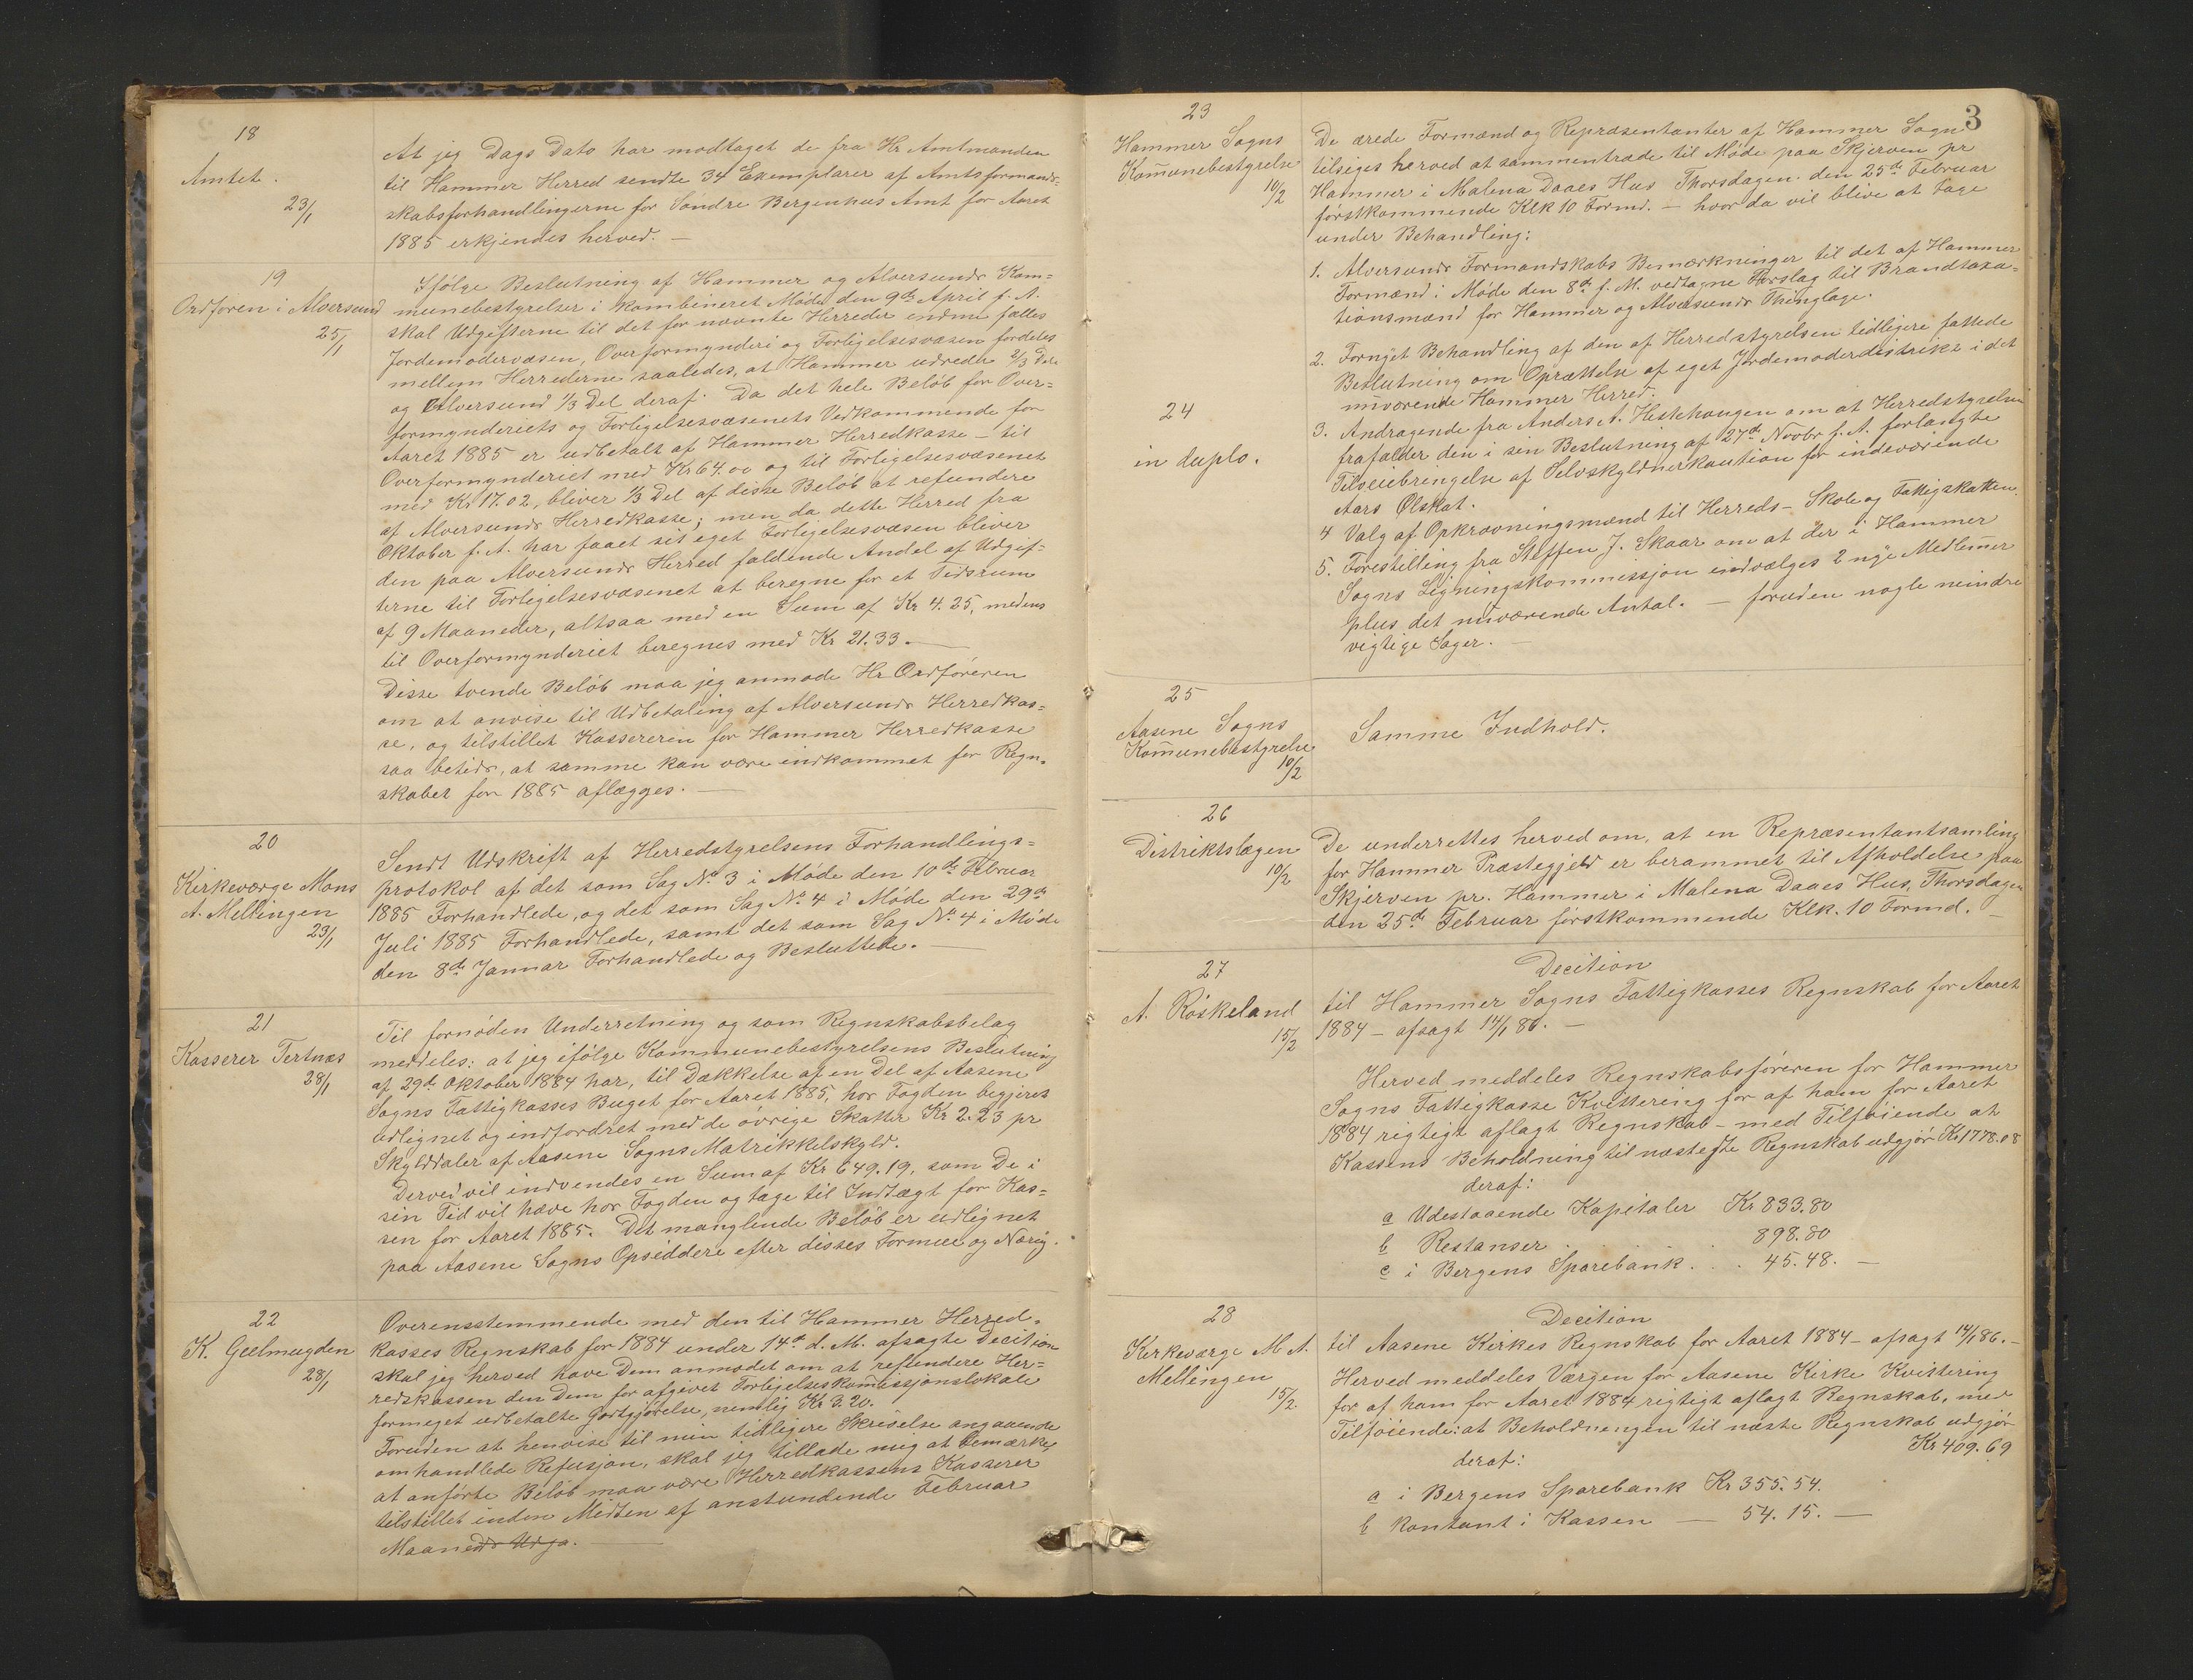 18
Amtet.
23/1
At jeg Dags Dato har modtaget de fra Hr Amtmanden
til Hammer Herred sendte 34 Exemplarer af Amtsformand-
skabsforhandlingerne for Søndre Bergenhus Amt for Aaret
1885 erkjendes herved. —
19
Ordføren i Alversund
25/1
Ifølge Beslutning af Hammer og Alversunds Kom=
munebestyrelser i kombineret Møde den 9de April f. A.
skal Udgifterne til det for nævnte Herreder endnu fælles
Jordemodervæsen, Overformynderi og Forligelsesvæsen fordeles
mellem Herrederne saaledes, at Hammer udreder 2/3 Dele
og Alversund 1/3 Del deraf. Da det hele Beløb for Over=
formynderiets og Forligelsesvæsenets Vedkommende for
Aaret 1885 er udbetalt af Hammer Herredkasse — til
Overformynderiet med Kr 64.00 og til Forligelsesvæsenet
med Kr 17.02, bliver 1/3 Del af disse Beløb at refundere
af Alversunds Herredkasse; men da dette Herred fra
Oktober f. A. har faaet sit eget Forligelsesvæsen bliver
den paa Alversunds Herred faldende Andel af Udgif=
terne til Forligelsesvæsenet at beregne for et Tidsrum
af 9 Maaneder, altsaa med en Sum af Kr 4.25, medens
til Overformynderiet beregnes med Kr 21.33. —
Disse tvende Beløb maa jeg anmode Hr Ordføreren
om at anvise til Udbetaling af Alversunds Herredkas=
se, og tilstillet Kassereren for Hammer Herredkasse
saa betids, at samme kan være indkommet før Regn-
skabet for 1885 aflægges. —
20
Kirkeværge Mons
A. Mellingen
23/1
Sendt Udskrift af Herredstyrelsens Forhandlings=
protokol af det som Sag No 3 i Møde den 10de Februar
1885 Forhandlede, og det som Sag No 4 i Møde den 29de
Juli 1885 Forhandlede, samt det som Sag No 4 i Møde
den 8de Januar Forhandlede og Besluttede. —
21
Kasserer Tertnæs
28/1
Til fornøden Underretning og som Regnskabsbelag
meddeles: at jeg ifølge Kommunebestyrelsens Beslutning
af 29de Oktober 1884 har, til Dækkelse af en Del af Aasene
Sogns Fattigkasses Buget for Aaret 1885, hos Fogden begjæret
udlignet og indfordret med de øvrige Skatter Kr 2.23 pr
Skylddaler af Aasene Sogns Matrikkelskyld.
Derved vil indvendes en Sum af Kr 649.19, som De i
sin Tid vil hæve hos Fogden og tage til Indtægt for Kas=
sen for Aaret 1885. Det manglende Beløb er udlignet
paa Aasene Sogns Opsiddere efter disses Formue og Næring.
22
K. Geelmuyden
28/1
Overensstemmende med den til Hammer Herred-
kasses Regnskab for 1884 under 14de d. M. afsagte Decition
skal jeg herved have Dem anmodet om at refundere Her=
redskassen den Dem for afgivet Forligelseskommissjonslokale
formeget udbetalte Godtgjørelse, nemlig Kr 3.20.
Foruden at henvise til min tidligere Skrivelse angaaende
omhandlede Refusjon, skal jeg tillade mig at bemærke,
at anførte Beløb maa være Herredkassens Kasserer
tilstillet inden Midten af anstundende Februar
Maaneds Udga. —
3
23
Hammer Sogns
Komunebestyrelse
10/2
De ærede Formænd og Repræsentanter af Hammer Sogn
tilsiges herved at sammentræde til Møde paa Skjerven pr
Hammer i Malena Daaes Hus Thorsdagen den 25de Februar
førstkommende Klk 10 Formd. — hvor da vil blive at tage
under Behandling:
1. Alversunds Formandskabs Bemærkninger til det af Hammer
Formænd i Møde den 8de f. M. vedtagne Forslag til Brandtaxa=
tionsmænd for Hammer og Alversunds Thinglage.
2. Fornyet Behandling af den af Herredstyrelsen tidligere fattede
Beslutning om Oprættelse af eget Jordemoderdistrikt i det
nuværende Hammer Herred.
3. Andragende fra Anders A. Hestehougen om at Herredstyrelsen
frafalder den i sin Beslutning af 27de Novbr f. A. forlangte
Tilveiebringelse af Selvskyldnerkaution for indeværende
Aars Ølskat.
4 Valg af Opkrævningsmænd til Herreds- Skole og Fattigskatten.
5. Forestilling fra Steffen J. Skaar om at der i Hammer
Sogns Ligningskommissjon indvælges 2 nye Medlemer
plus det nuværende Antal. — foruden nogle mindre
vigtige Sager.
24
in duplo.
25
Aasene Sogns
Komunebestyrelse
10/2
Samme Indhold.
26
Distriktslægen
10/2
De underrettes herved om, at en Repræsentantsamling
for Hammer Præstegjeld er berammet til Afholdelse paa
Skjerven pr. Hammer i Malena Daaes Hus, Thorsdagen
den 25de Februar førstkommende Klk. 10 Formd. —
27
A. Røskeland
15/2
Decition
til Hammer Sogns Fattigkasses Regnskab for Aaret
1884 — afsagt 14/1 86. —
Herved meddeles Regnskabsføreren for Hammer
Sogns Fattigkasse Kvittering for af ham for Aaret
1884 rigtigt aflagt Regnskab — med Tilføiende at
Kassens Beholdning til næste Regnskab udgjør Kr 1778.08
deraf:
a Udestaaende Kapitaler Kr 833.80
b Restanser . 898.80
c i Bergens Sparebank . . . 45.48. —
28
Kirkeværge M. A.
Mellingen
15/2.
Decition
til Aasene Kirkes Regnskab for Aaret 1884 — afsagt 14/1 86. —
Herved meddeles Værgen for Aasene Kirke Kvittering
for af ham for Aaret 1884 rigtigt aflagt Regnskab, med
Tilføiende: at Beholdningen til næste Regnskab udgjør
Kr 409.69
deraf:
a i Bergens Sparebank Kr 355.54.
b Kontant i Kassen — 54.15. —